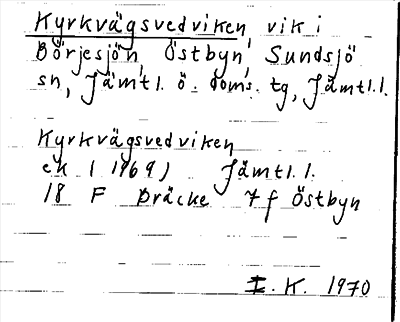 Kyrkvägsvedviken, vik i
Börjesjön, Östbyn, Sundsjö
sn, Jämtl. ö. doms. tg, Jämtl.l.
Kyrkvägsvedviken
ek (1969) Jämtl.l.
18 F Bräcke 7f Östbyn
I.K. 1970